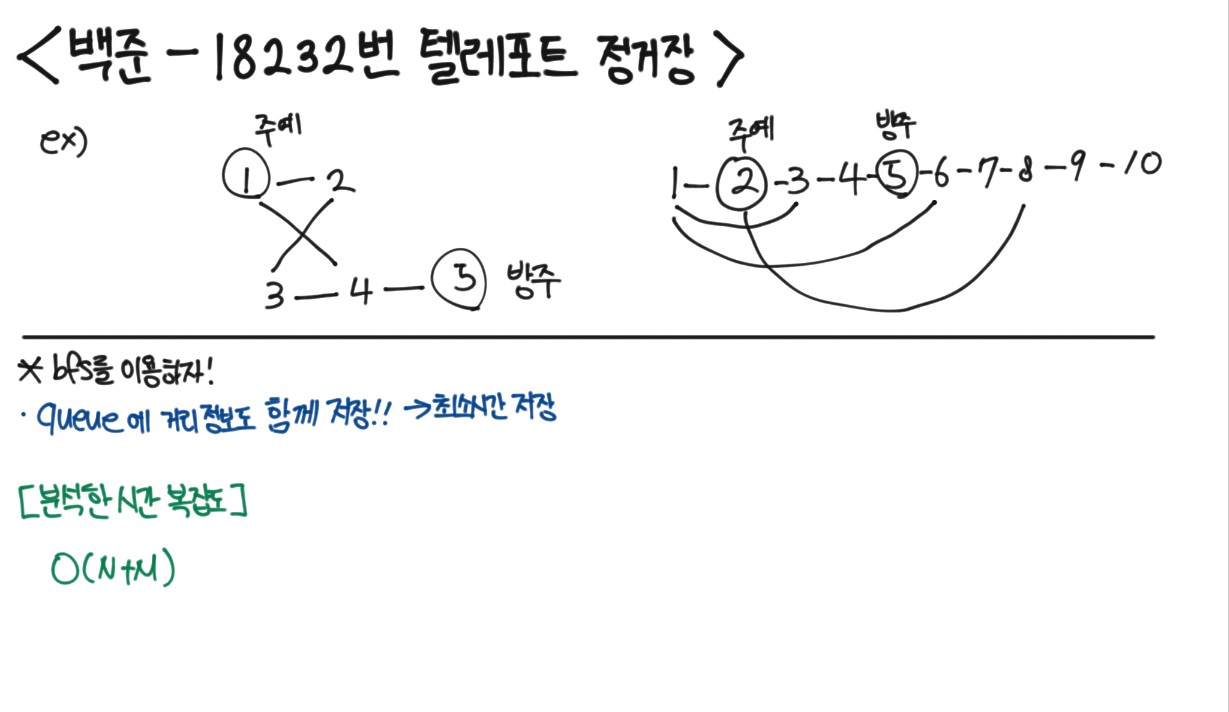 <백준 - 18232번 텔레포트 정거장>
ex)
주예
1 - 2
3 - 4 - 5 방주
주예 방주
1 - 2 - 3 - 4 - 5 - 6 - 7 - 8 - 9 - 10
* bfs를 이용하자!
· queue에 거리정보도 함께 저장!! → 최소시간 저장
[분석한 시간 복잡도]
O(N+M)